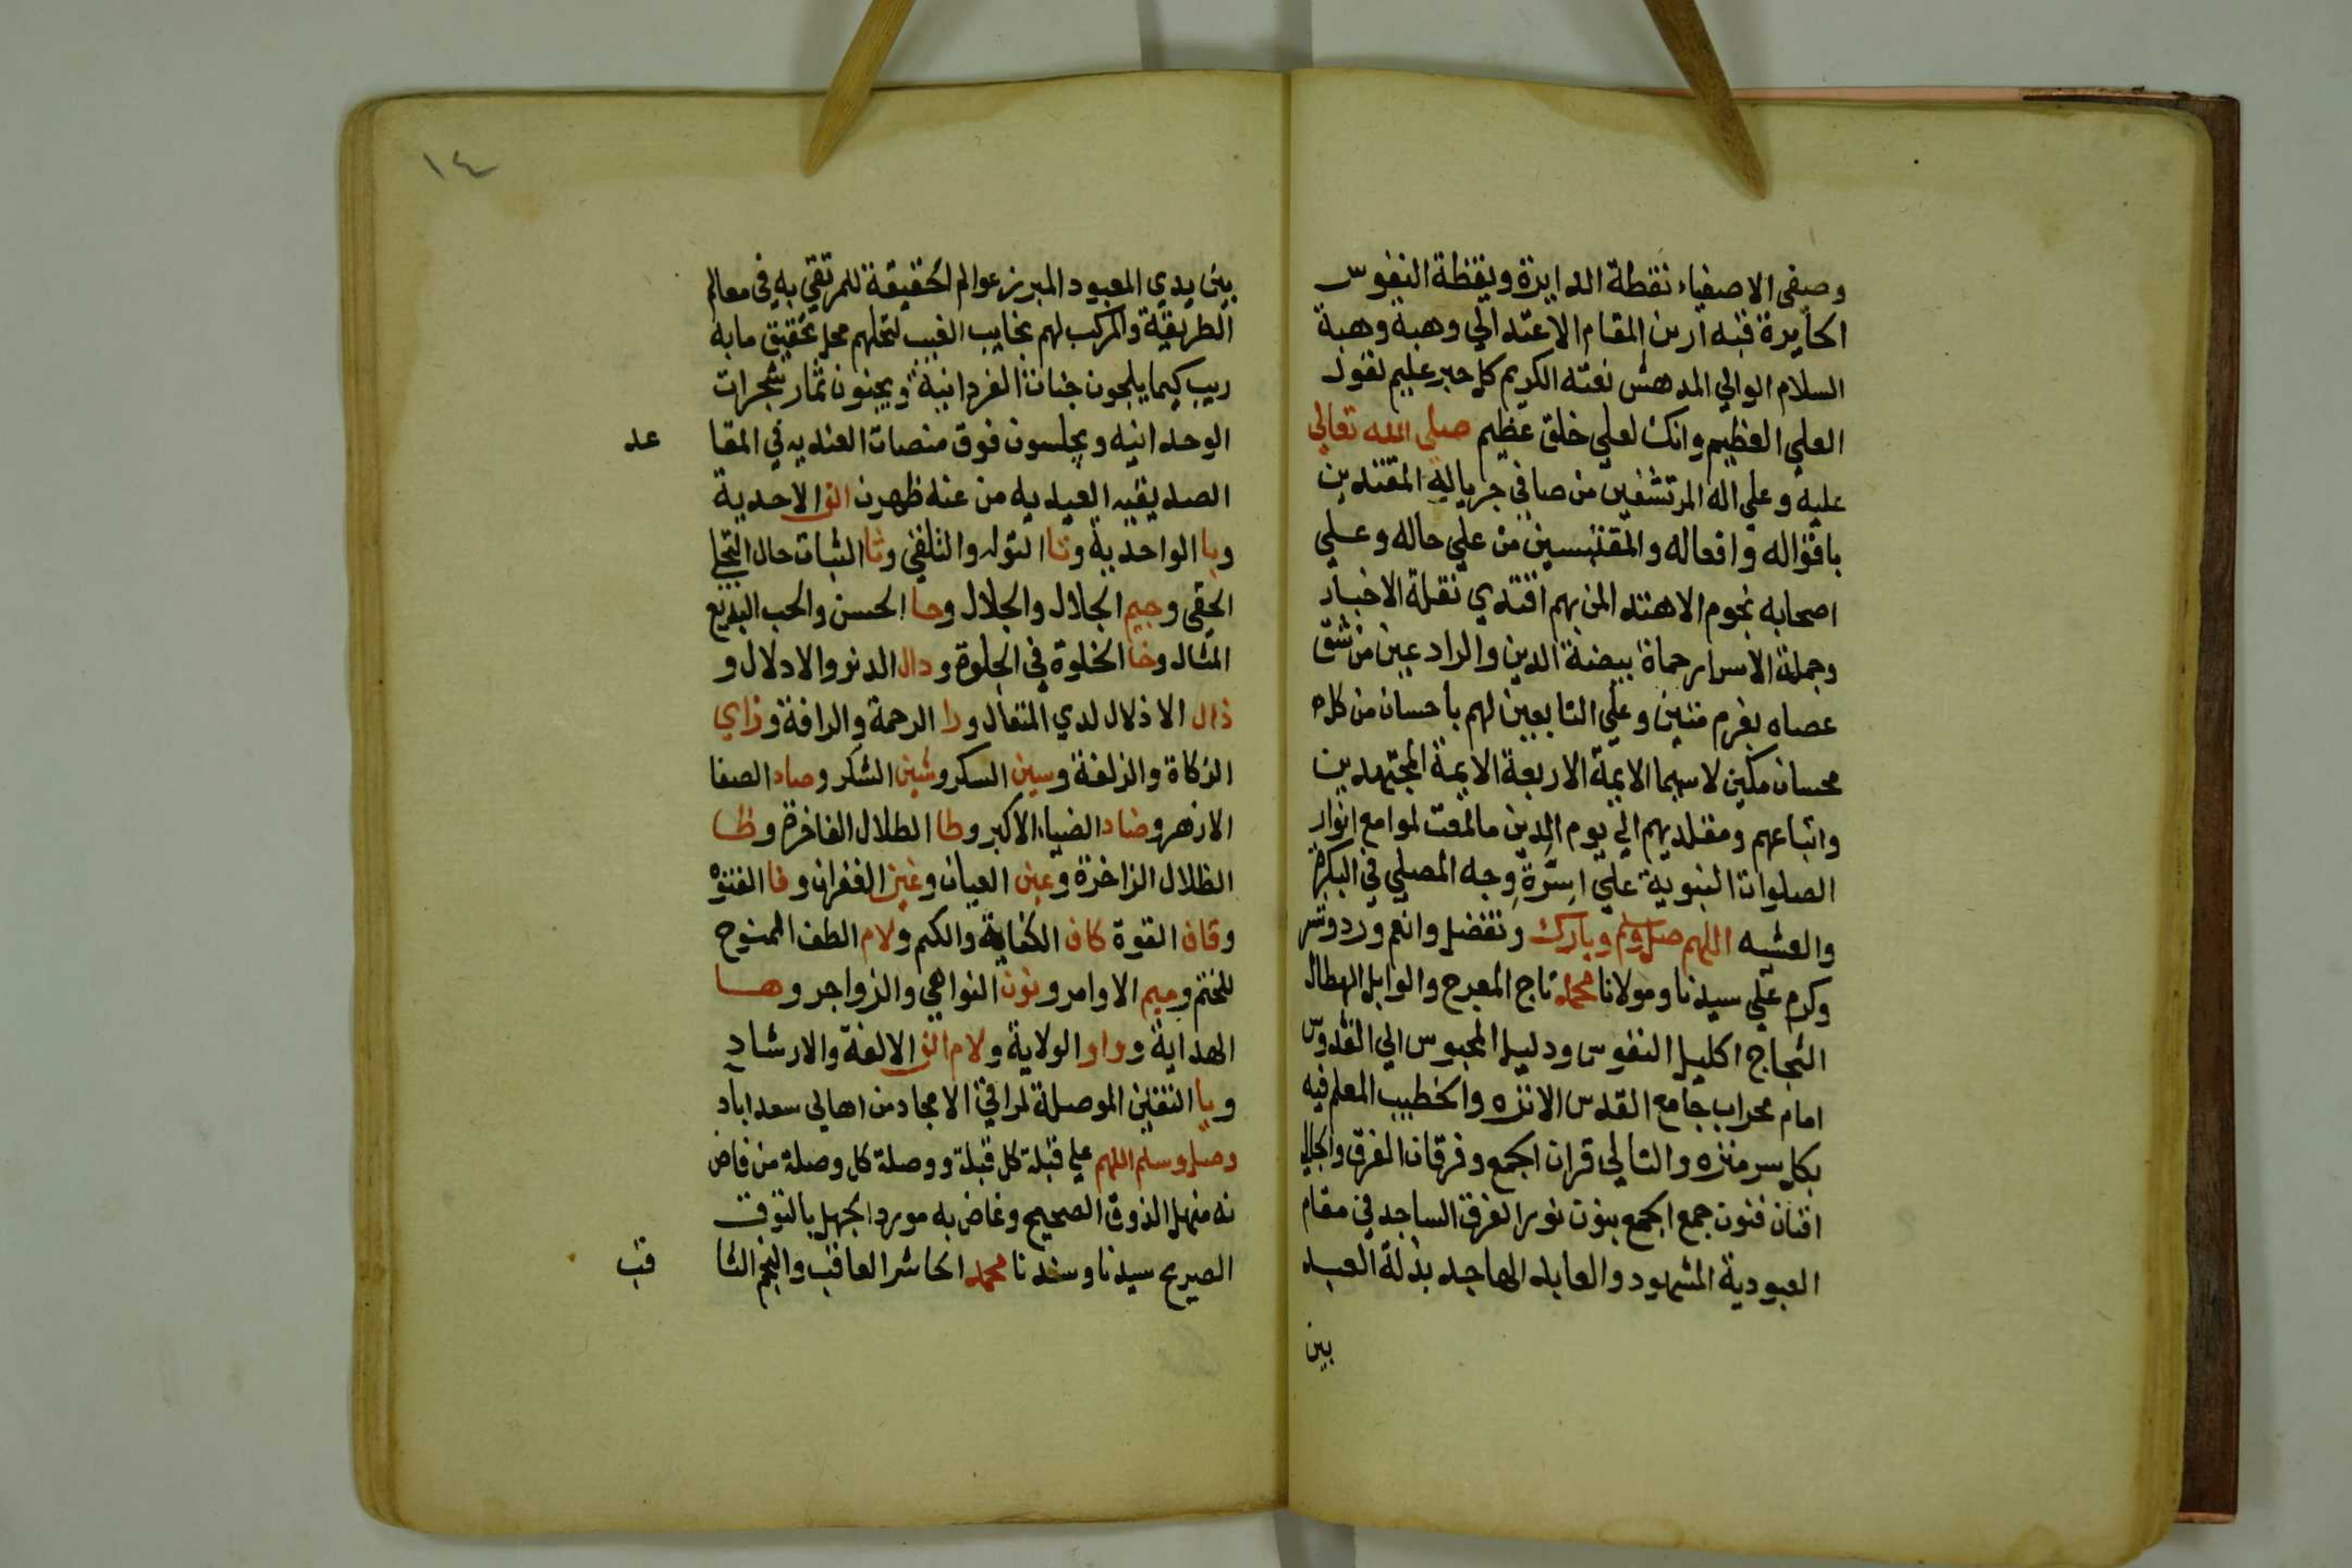 وصفي الاصفياء نقطة الدايرة ويقظة النفوس
الحايرة قبه ارين المقام الاعتدالي وهبة وهبة
السلام الوالي المدهش نعته الكريم كل حبر عليم لقول
العلي العظيم وانك لعلي خلق عظيم صلي الله تعالي
عليه وعلي اله المرتشفين من صافي جرياله المقتدين
باقواله وافعاله والمقتبسين من علي حاله وعلي
اصحابه نجوم الاهتدا المن بهم اقتدي نقلة الاخبار
وحملة الاسرار حماة بيضة الدين والرادعين من شق
عصاه بعزم متين وعلي التابعين لهم باحسان من كل
محسان مكين لاسيما الايمة الاربعة الايمة المجتهدين
واتباعهم ومقلديهم الي يوم الدين مالمعت لوامع انوار
الصلوات النبوية علي اسرة وجه المصلي في البكرة
والعشيه اللهم صل وسلم وبارك وتفضل وانعم وزد وشر
وكرم علي سيدنا ومولانا محمد تاج المعرج والوابل الهطال
الثجاج اكليل النفوس ودليل المحبوس الي القدوس
امام محراب جامع القدس الانزه والخطيب المعلم فيه
بكل سر منزه والتالي قران الجمع وفرقان الفرق والجالي
افنان فنون جمع الجمع بنون نور الفرق الساجد في مقام
العبودية المشهود والعابد الهاجد بذلة العبد
بين
١٤
بين يدي المعبود المبرز عوالم الحقيقة للمرتقي به في معالم
الطريقة والمركب لهم نجايب الغيب لتحلهم محل تحقيق مابه
ريب كيما يلجون جنات الفردانية ويجنون ثمار شجرات
الوحدانيه ويجلسون فوق منصات العنديه في المقا
عد
الصديقيه العبديه من عنه ظهرن الف الاحدية
وبا الواحدية وتا التوله والتلقي وثا الثبات حال التجلي
الحقي وجيم الجلال والجلال وحا الحسن والحب البديع
المثال وخا الخلوة في الجلوة ودال الدنو والادلال و
ذال الاذلال لدي المتعال ورا الرحمة والرافة وزاي
الزكاة والزلفة وسين السكر وشين الشكر وصاد الصفا
الازهر وضاد الضياء الاكبر وطا الطلال الفاخرة وظا
الظلال الزاخرة وعين العيان وغين الغفران وفا الفتوه
وقاف القوة كاف الكفاية والكم ولام الطف الممنوح
للختم وميم الاوامر ونون النواهي والزواجر وها
الهداية وواو الولاية ولام الف الالفة والارشاد
ويا التقين الموصلة لمراقي الامجاد من اهالي سعد اباد
وصل وسلم اللهم علي قبلة كل قبلة ووصلة كل وصلة من فاض
نه منهل الذوق الصحيح وغاض به مورد الجهل بالتوق
الصريح سيدنا وسندنا محمد الحاشر العاقب والنجم الثا
قب